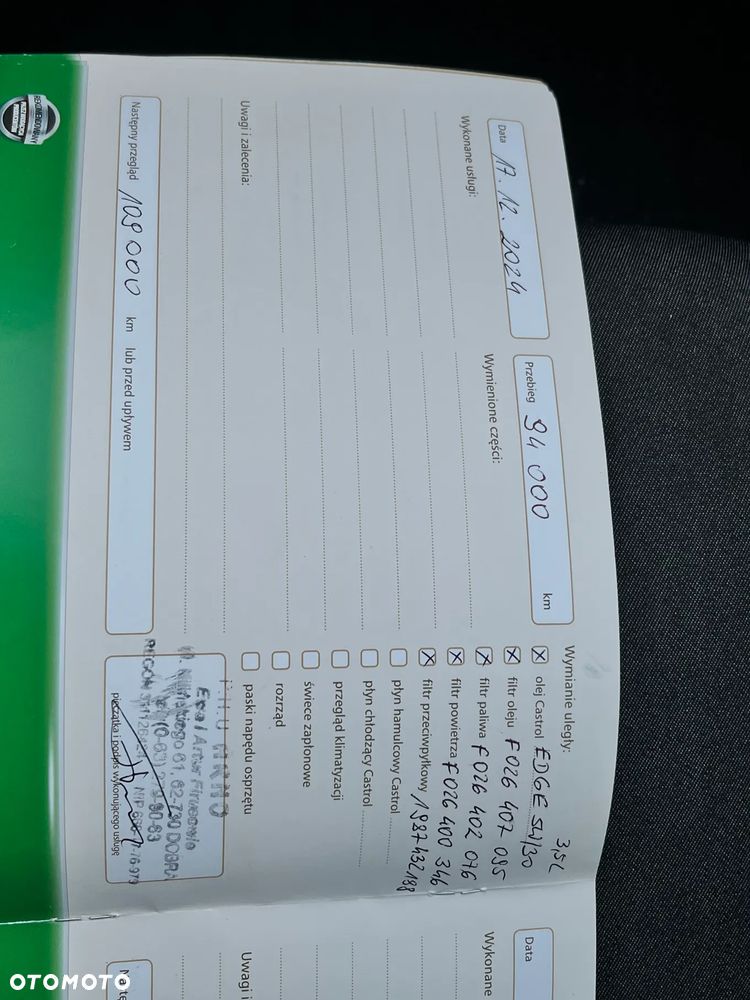 Data 17.12.2024
Przebieg 94 000 km
Wykonane usługi:
Wymienione części:
Wymianie uległy:
3,5L
olej Castrol EDGE 5W/30
filtr oleju F 026 407 095
filtr paliwa F 026 402 076
filtr powietrza F 026 400 346
filtr przeciwpyłkowy 1987432188
płyn hamulcowy Castrol
płyn chłodzący Castrol
przegląd klimatyzacji
świece zapłonowe
rozrząd
paski napędu osprzętu
Uwagi i zalecenia:
Następny przegląd 109 000 km lub przed upływem
REGON
NIP
pieczątka i podpis wykonującego usługę
Data
Wykonane
Uwagi i
REKOMENDOWANY
OTOMOTO